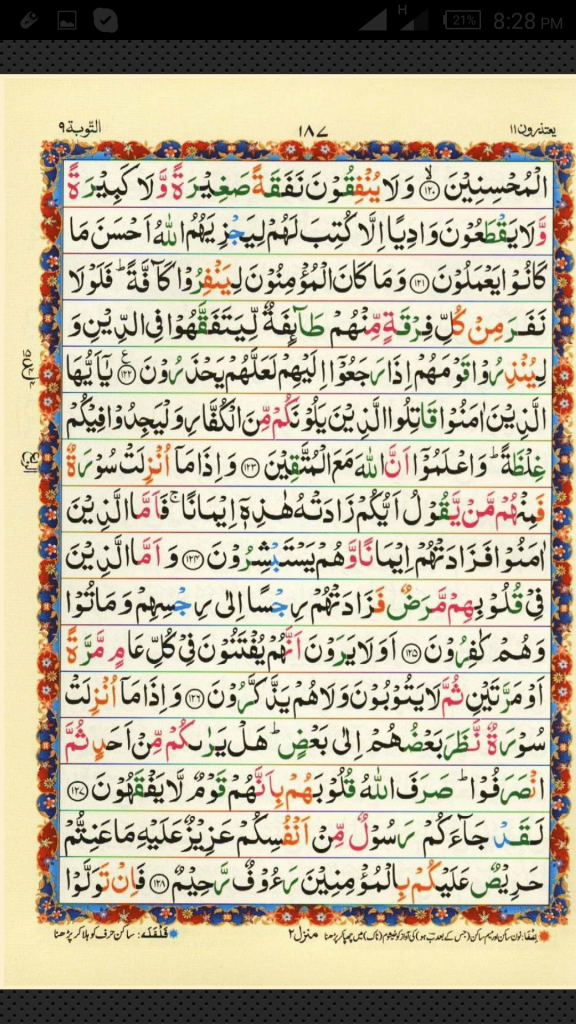 H 21% 8:28 PM
یعتذرون۱۱ ۱۸۷ التوبة۹
الْمُحْسِنِيْنَ ﴿۱۲۰﴾ۙ وَلَا يُنْفِقُوْنَ نَفَقَةً صَغِيْرَةً وَّلَا كَبِيْرَةً
وَّلَا يَقْطَعُوْنَ وَادِيًا اِلَّا كُتِبَ لَهُمْ لِيَجْزِيَهُمُ اللّٰهُ اَحْسَنَ مَا
كَانُوْا يَعْمَلُوْنَ ﴿۱۲۱﴾ وَمَا كَانَ الْمُؤْمِنُوْنَ لِيَنْفِرُوْا كَآفَّةً ؕ فَلَوْلَا
نَفَرَ مِنْ كُلِّ فِرْقَةٍ مِّنْهُمْ طَآئِفَةٌ لِّيَتَفَقَّهُوْا فِى الدِّيْنِ وَ
لِيُنْذِرُوْا قَوْمَهُمْ اِذَا رَجَعُوْۤا اِلَيْهِمْ لَعَلَّهُمْ يَحْذَرُوْنَ ﴿۱۲۲﴾ ع يٰۤاَيُّهَا
الَّذِيْنَ اٰمَنُوْا قَاتِلُوا الَّذِيْنَ يَلُوْنَكُمْ مِّنَ الْكُفَّارِ وَلْيَجِدُوْا فِيْكُمْ
غِلْظَةً ؕ وَاعْلَمُوْۤا اَنَّ اللّٰهَ مَعَ الْمُتَّقِيْنَ ﴿۱۲۳﴾ وَاِذَا مَاۤ اُنْزِلَتْ سُوْرَةٌ
فَمِنْهُمْ مَّنْ يَّقُوْلُ اَيُّكُمْ زَادَتْهُ هٰذِهٖۤ اِيْمَانًا ۚ فَاَمَّا الَّذِيْنَ
اٰمَنُوْا فَزَادَتْهُمْ اِيْمَانًا وَّهُمْ يَسْتَبْشِرُوْنَ ﴿۱۲۴﴾ وَاَمَّا الَّذِيْنَ
فِىْ قُلُوْبِهِمْ مَّرَضٌ فَزَادَتْهُمْ رِجْسًا اِلٰى رِجْسِهِمْ وَمَاتُوْا
وَهُمْ كٰفِرُوْنَ ﴿۱۲۵﴾ اَوَلَا يَرَوْنَ اَنَّهُمْ يُفْتَنُوْنَ فِىْ كُلِّ عَامٍ مَّرَّةً
اَوْ مَرَّتَيْنِ ثُمَّ لَا يَتُوْبُوْنَ وَلَا هُمْ يَذَّكَّرُوْنَ ﴿۱۲۶﴾ وَاِذَا مَاۤ اُنْزِلَتْ
سُوْرَةٌ نَّظَرَ بَعْضُهُمْ اِلٰى بَعْضٍ ؕ هَلْ يَرٰىكُمْ مِّنْ اَحَدٍ ثُمَّ
انْصَرَفُوْا ؕ صَرَفَ اللّٰهُ قُلُوْبَهُمْ بِاَنَّهُمْ قَوْمٌ لَّا يَفْقَهُوْنَ ﴿۱۲۷﴾
لَقَدْ جَآءَكُمْ رَسُوْلٌ مِّنْ اَنْفُسِكُمْ عَزِيْزٌ عَلَيْهِ مَا عَنِتُّمْ
حَرِيْصٌ عَلَيْكُمْ بِالْمُؤْمِنِيْنَ رَءُوْفٌ رَّحِيْمٌ ﴿۱۲۸﴾ فَاِنْ تَوَلَّوْا
منزل۲ قَلْقَلَه: ساکن حرف کو ہلا کر پڑھنا